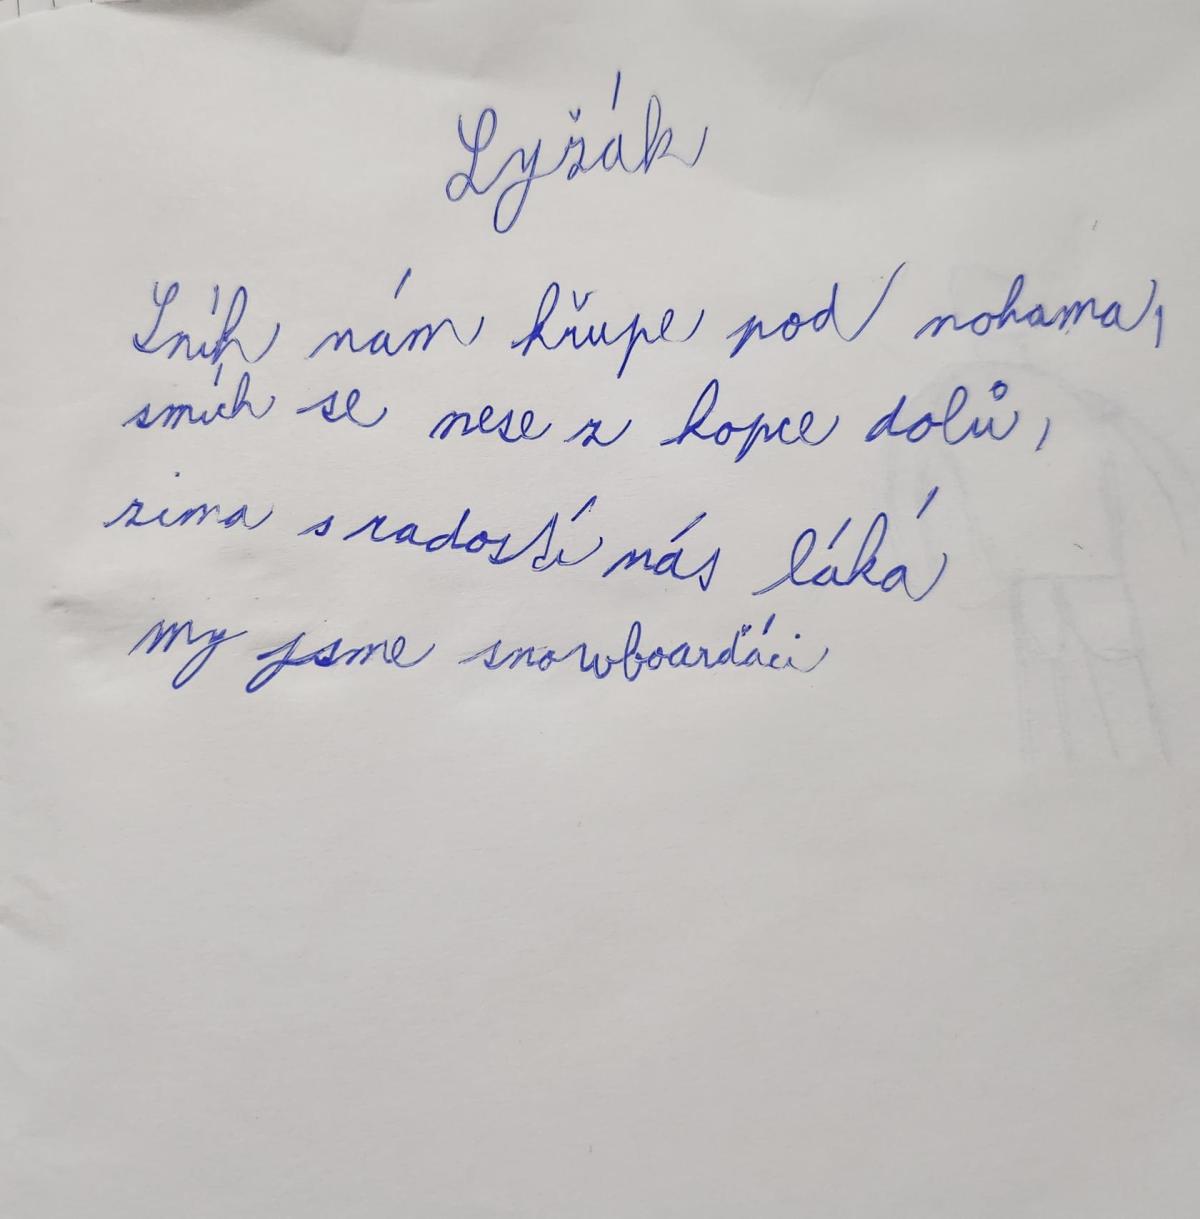 Lyžák
Sníh nám křupe pod nohama,
smích se nese z kopce dolů,
zima s radostí nás láká
my jsme snowboarďáci